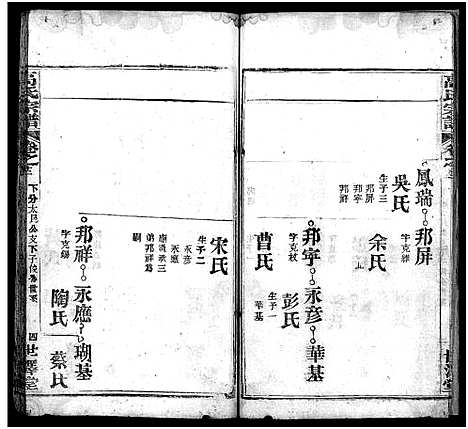 高氏宗譜
卷之
鳳瑞 邦屏
字克祥
吳氏
生子三
邦屏
邦寧
邦祥
余氏
邦寧 永彦 華基
字克枚
彭氏
生子一
華基
曹氏
宋氏
生子二
永彦
永應
永應承三
弟邦祥爲
嗣
邦祥 永應 瑚基
字克錫
陶氏
蔡氏
高氏宗譜
卷之
下分太
公支下
四
世澤堂